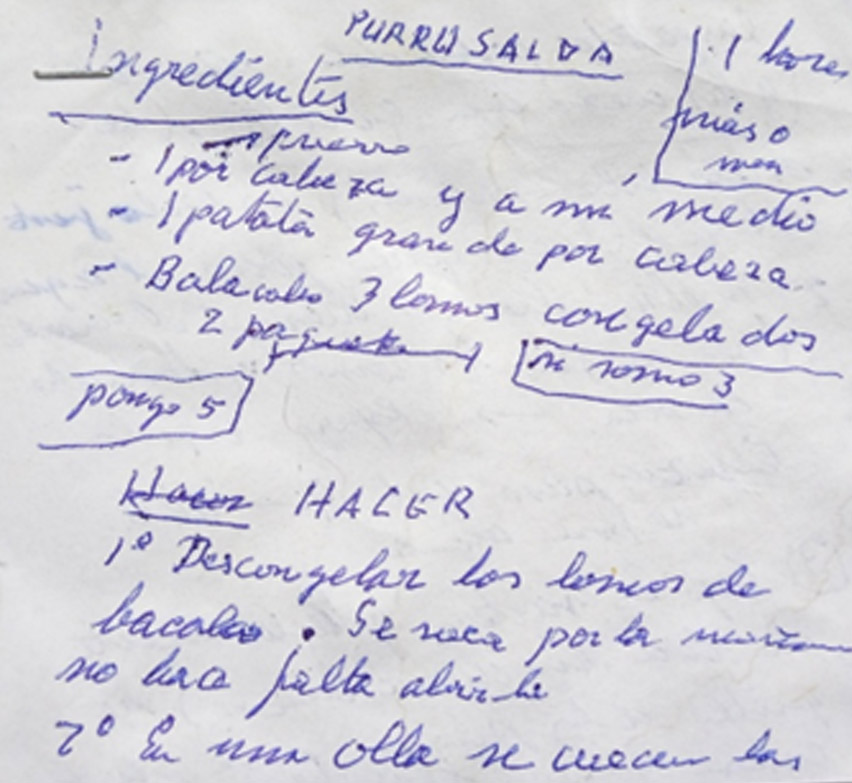 PURRUSALDA
1 hora
más o
men
Ingredientes
puerro
- 1 por cabeza y a mi medio
- 1 patata grande por cabeza
- Balacalao 3 lomos congelados
2 paquetes
si somos 3
pongo 5
Hacer HACER
1º Descongelar los lomos de
bacalao. Se saca por la mañana
no hace falta abrirlo
2º En una olla se cuecen las